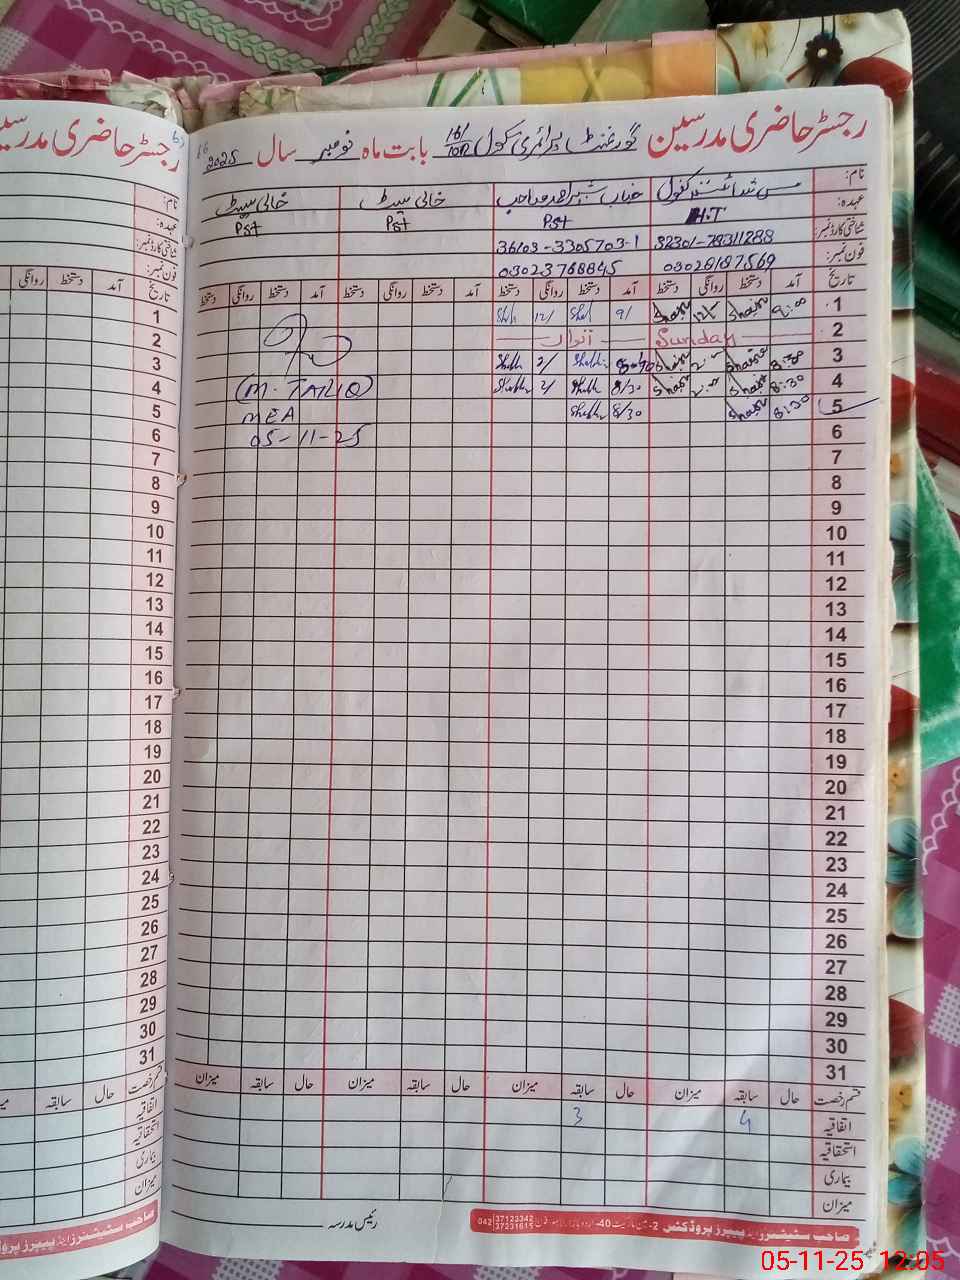 رجسٹر حاضری مدرسین گورنمنٹ پرائمری سکول 161/10R بابت ماہ نومبر سال 2025 16
نام: جناب شبیر احمد صاحب خالی سیٹ خالی سیٹ
عہدہ: H.T Pst Pst Pst
شناختی کارڈ نمبر: 36103-3305703-1
فون نمبر: 03028187569 03023768845
تاریخ آمد دستخط روانگی دستخط آمد دستخط روانگی دستخط آمد دستخط روانگی دستخط آمد دستخط روانگی دستخط
1 9:00 12/- 9/ 12/
2 Sunday اتوار
3 8:30 2/
4 8:30 8/30 2/ (M. TARIQ)
5 8:30 8/30 MEA
6 05-11-25
7
8
9
10
11
12
13
14
15
16
17
18
19
20
21
22
23
24
25
26
27
28
29
30
31
قسم رخصت حال سابقہ میزان حال سابقہ میزان حال سابقہ میزان حال سابقہ میزان
اتفاقیہ 4 3
استحقاقیہ
بیماری
میزان
رئیس مدرسہ
صاحب سٹیشنرز اینڈ پیپرز پروڈکٹس 042 37123342 37231615
رجسٹر حاضری مدرسین
نام:
عہدہ:
شناختی کارڈ نمبر:
فون نمبر:
تاریخ آمد دستخط روانگی
1
2
3
4
5
6
7
8
9
10
11
12
13
14
15
16
17
18
19
20
21
22
23
24
25
26
27
28
29
30
31
قسم رخصت حال سابقہ
اتفاقیہ
استحقاقیہ
بیماری
میزان
صاحب سٹیشنرز اینڈ پیپرز
05-11-25 12:05